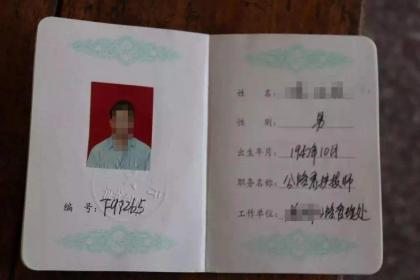 编 号: F97265
姓 名:
性 别: 男
出生年月: 年10月
职务名称: 公路技师
工作单位: 路管理处